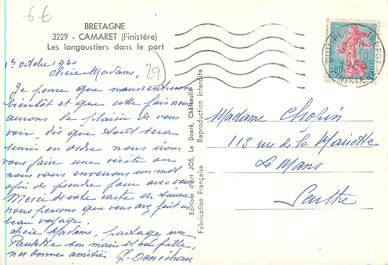 6€
BRETAGNE
3229 - CAMARET (Finistère)
Les langoustiers dans le port
29
1er octobre 1960
chère Madame,
Je pense que nous
bientôt et que cette fois nous
aurons le plaisir de vous
voir, dès que tout sera
remis en ordre nous irons
vous faire une visite ou
nous vous enverrons un mot
afin de prendre date avec vous
Merci de votre carte de
nous pensons que vous avez fait un
beau voyage.
chère Madame, partagez avec
Paulette son mari et sa fille,
nos bonnes amitiés
Editions d'art JOS, Le Doaré, Châteaulin
Reproduction interdite
Fabrication Française
Madame
113 rue de la Mariette
Le Mans
Sarthe